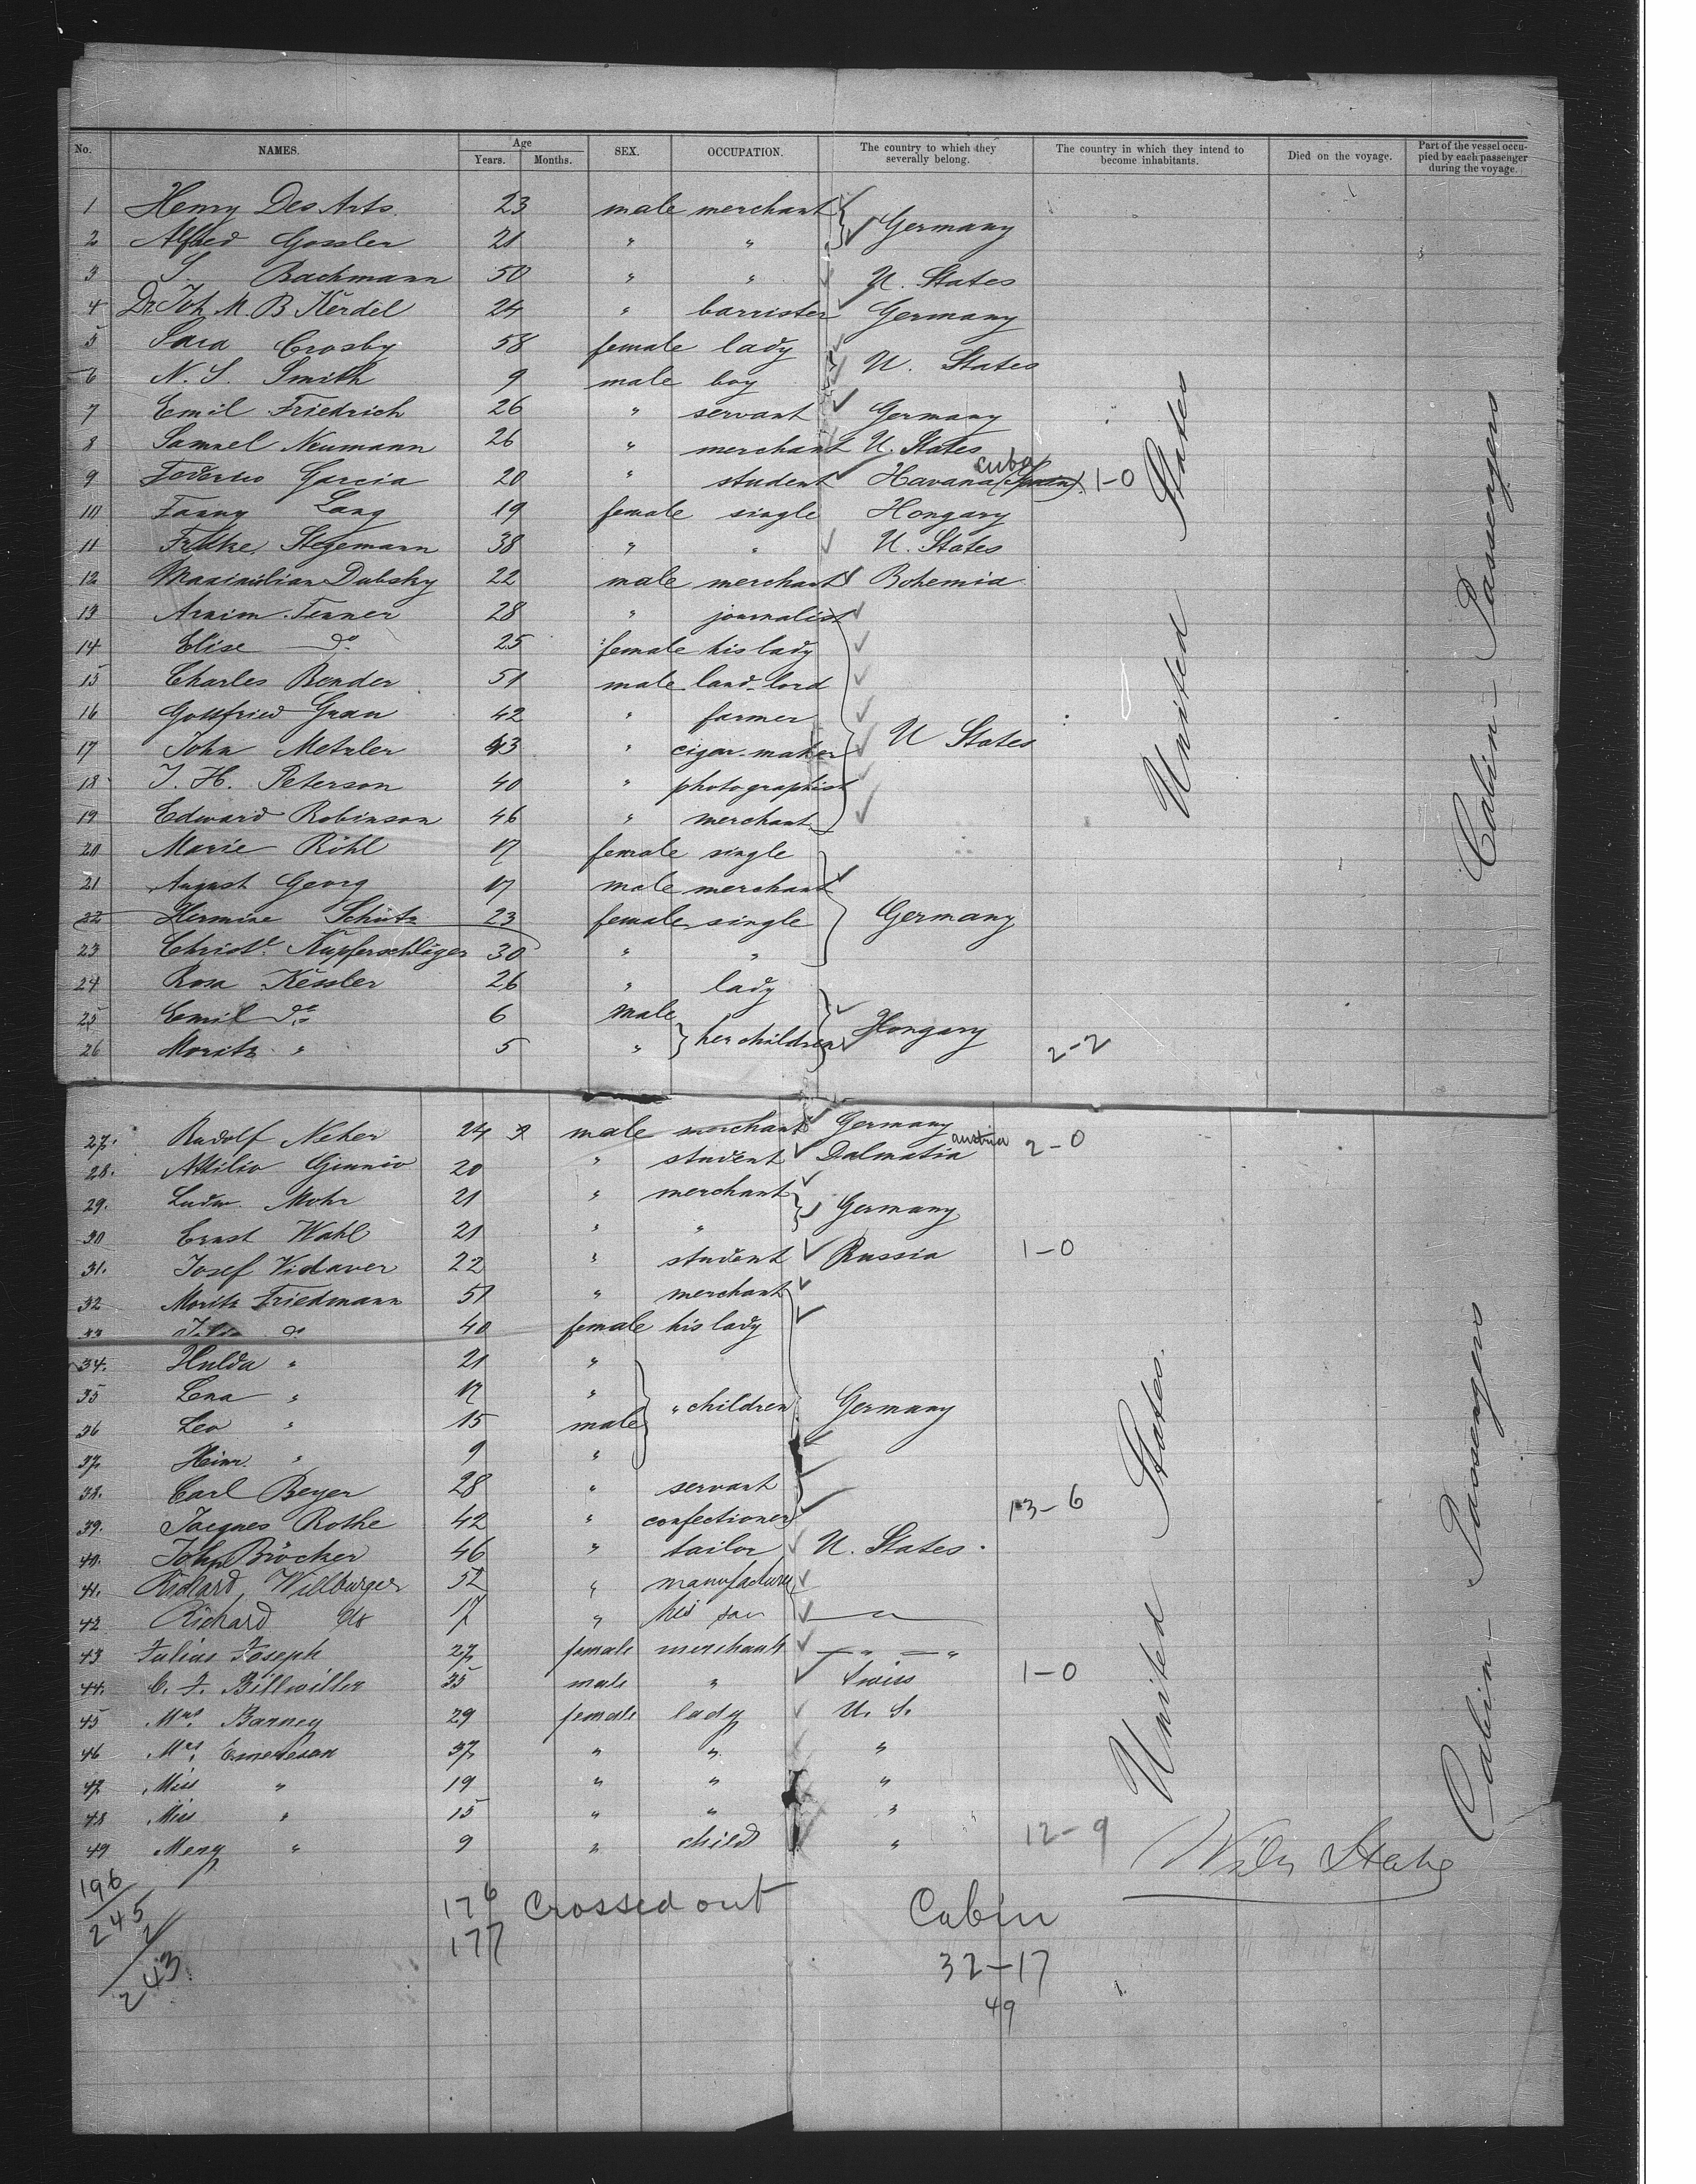 No. NAMES. Age Years. Months. SEX. OCCUPATION. The country to which they severally belong. The country in which they intend to become inhabitants. Died on the voyage. Part of the vessel occupied by each passenger during the voyage.
1 Henry Des Arts. 23 male merchant
2 Alfred Gossler 21 " " Germany
3 S. Bachmann 50 " " U. States
4 Dr. Joh. M. B Kerdel 24 " barrister Germany
5 Sara Crosby 58 female lady
6 N. S. Smith 9 male boy U. States
7 Emil Friedrich 26 " servant Germany
8 Samuel Neumann 26 " merchant U. States
9 Garcia 20 " student Havana (Spain) Cuba 1-0
10 Fanny Lang 19 female single Hongary
11 Stegemann 38 " " U. States
12 Maximilian Dubsky 22 male merchant Bohemia
13 Armin Tenner 28 " journalist
14 Elise do 25 female his lady
15 Charles Bender 51 male land-lord
16 Gottfried Grau 42 " farmer
17 John Metzler 43 " cigar-maker U States
18 J. H. Peterson 40 " photographist
19 Edward Robinson 46 " merchant
20 Marie Röhl 17 female single
21 August Georg 17 male merchant
22 Hermine Schütz 23 female single Germany
23 Christe. Kupferschläger 30 " "
24 Rosa Kessler 26 " lady
25 Emil do 6 male
26 Moritz " 5 " her children Hongary 2-2
United States
Cabin - Passengers
27. Rudolf Neher 24 male merchant Germany
28. Attilio Giunio 20 " student Dalmatia austria 2-0
29. Ludw. Mohr 21 " merchant
30 Ernst Wahl 21 " " Germany
31. Josef Vidaver 22 " student Russia 1-0
32 Moritz Friedmann 51 " merchant
33 do 40 female his lady
34. Hulda " 21 "
35 Lena " 17 "
36 Leo " 15 male " children Germany
37. Heinr. " 9 "
38. Carl Beyer 28 " servant
39. Jacques Rothe 42 " confectioner 13-6
40. John Bröcker 46 " tailor U. States.
41. Richard Willburger 52 " manufacturer
42 Richard do 17 " his son "
43 Julius Joseph 27 female merchant " "
44. C. F. Billwiller 35 male " Swiss 1-0
45 Mrs. Barney 29 female lady U. S.
46 Mrs. Emerson 37 " " "
47 Miss " 19 " " "
48 Miss " 15 " " "
49 " 9 " child " 12-9
United States.
Cabin - Passengers
196
245
2
243
176 Crossed out
177
Cabin
32-17
49